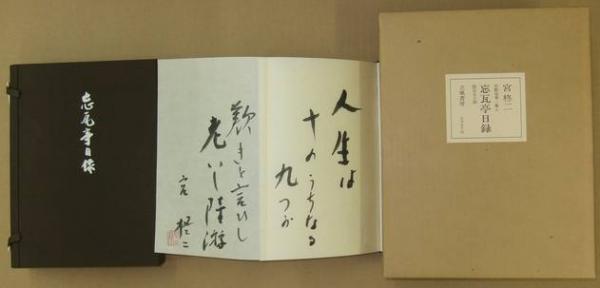 宮柊二
忘瓦亭日録
立風書房
人生は
十のうちなる
九つが
歎きと言ひし
老いし陸游
宮柊二
忘瓦亭日録